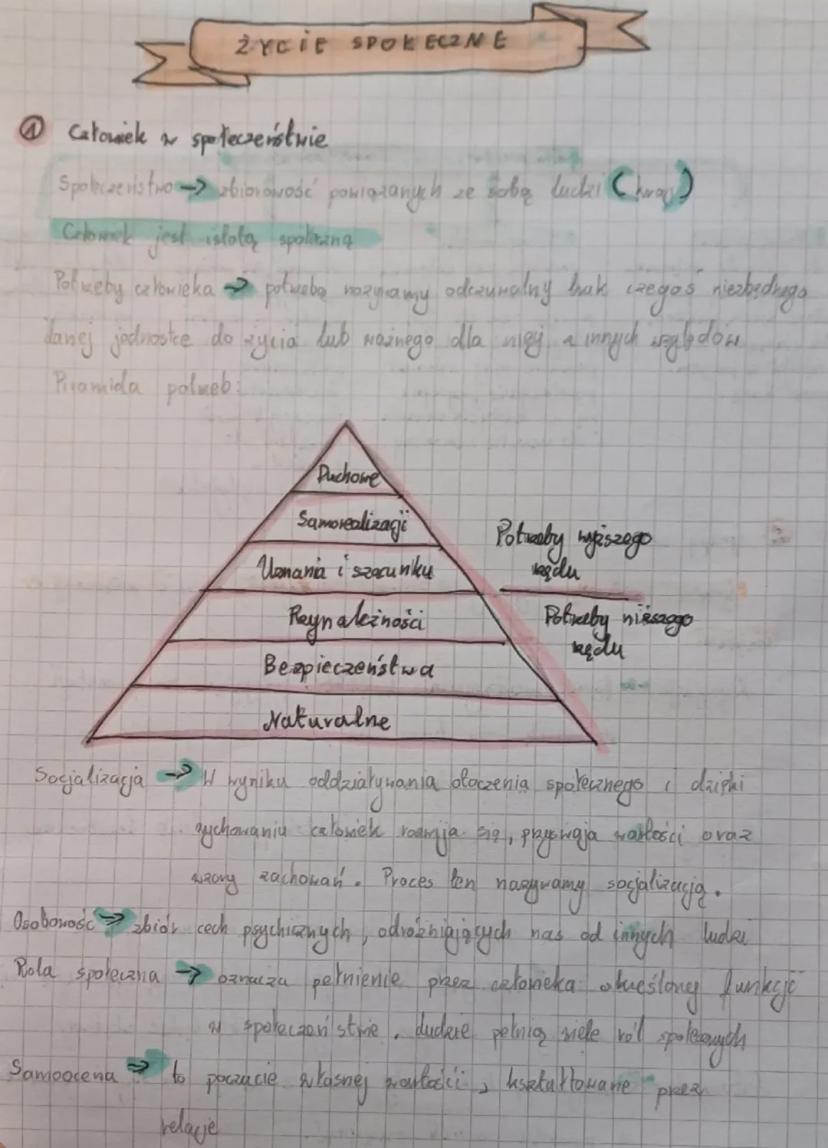 ŻYCIE SPOŁECZNE
① Człowiek w społeczeństwie
Społeczeństwo → zbiorowość powiązanych ze sobą ludzi
Człowiek jest istotą społeczną
Potrzeby człowieka → potrzebą nazywamy odczuwalny brak czegoś niezbędnego
danej jednostce do życia lub ważnego dla niej z innych względów
Piramida potrzeb:
Duchowe
Samorealizacji
Uznania i szacunku
Przynależności
Bezpieczeństwa
Naturalne
Potrzeby wyższego
rzędu
Potrzeby niższego
rzędu
Socjalizacja → W wyniku oddziaływania otoczenia społecznego i dzięki
wychowaniu człowiek rozwija się, przyswaja wartości oraz
wzory zachowań. Proces ten nazywamy socjalizacją.
Osobowość ⇒ zbiór cech psychicznych, odróżniających nas od innych ludzi
Rola społeczna → oznacza pełnienie przez człowieka określonej funkcji
w społeczeństwie. Ludzie pełnią wiele ról społecznych
Samoocena ⇒ to poczucie własnej wartości, kształtowane przez
relacje